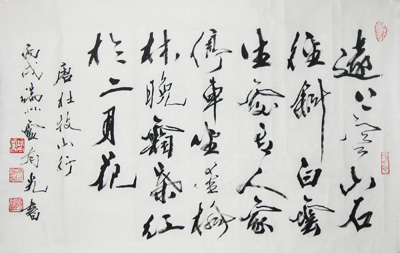 遠上寒山石
徑斜白雲
生處有人家
停車坐愛楓
林晚霜葉紅
於二月花
唐杜牧山行
丙戌 光書